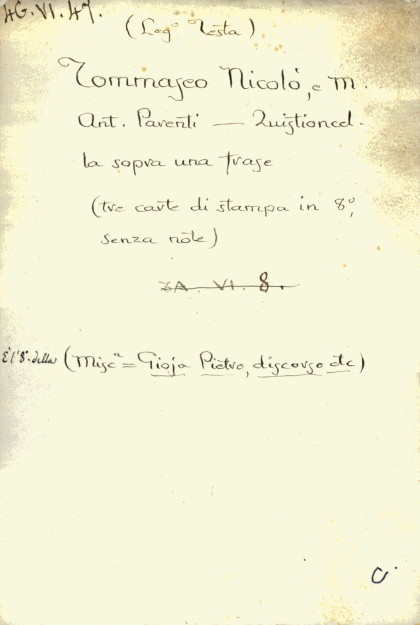 4G.VI.47.
(Legº Testa)
Tommaseo Nicolò, e M.
Ant. Parenti — Quistioncel-
la sopra una frase
(tre carte di stampa in 8º,
senza note)
3A. VI. 8.
È l'8ª. della (Miscª = Gioja Pietro, discorso etc)
C